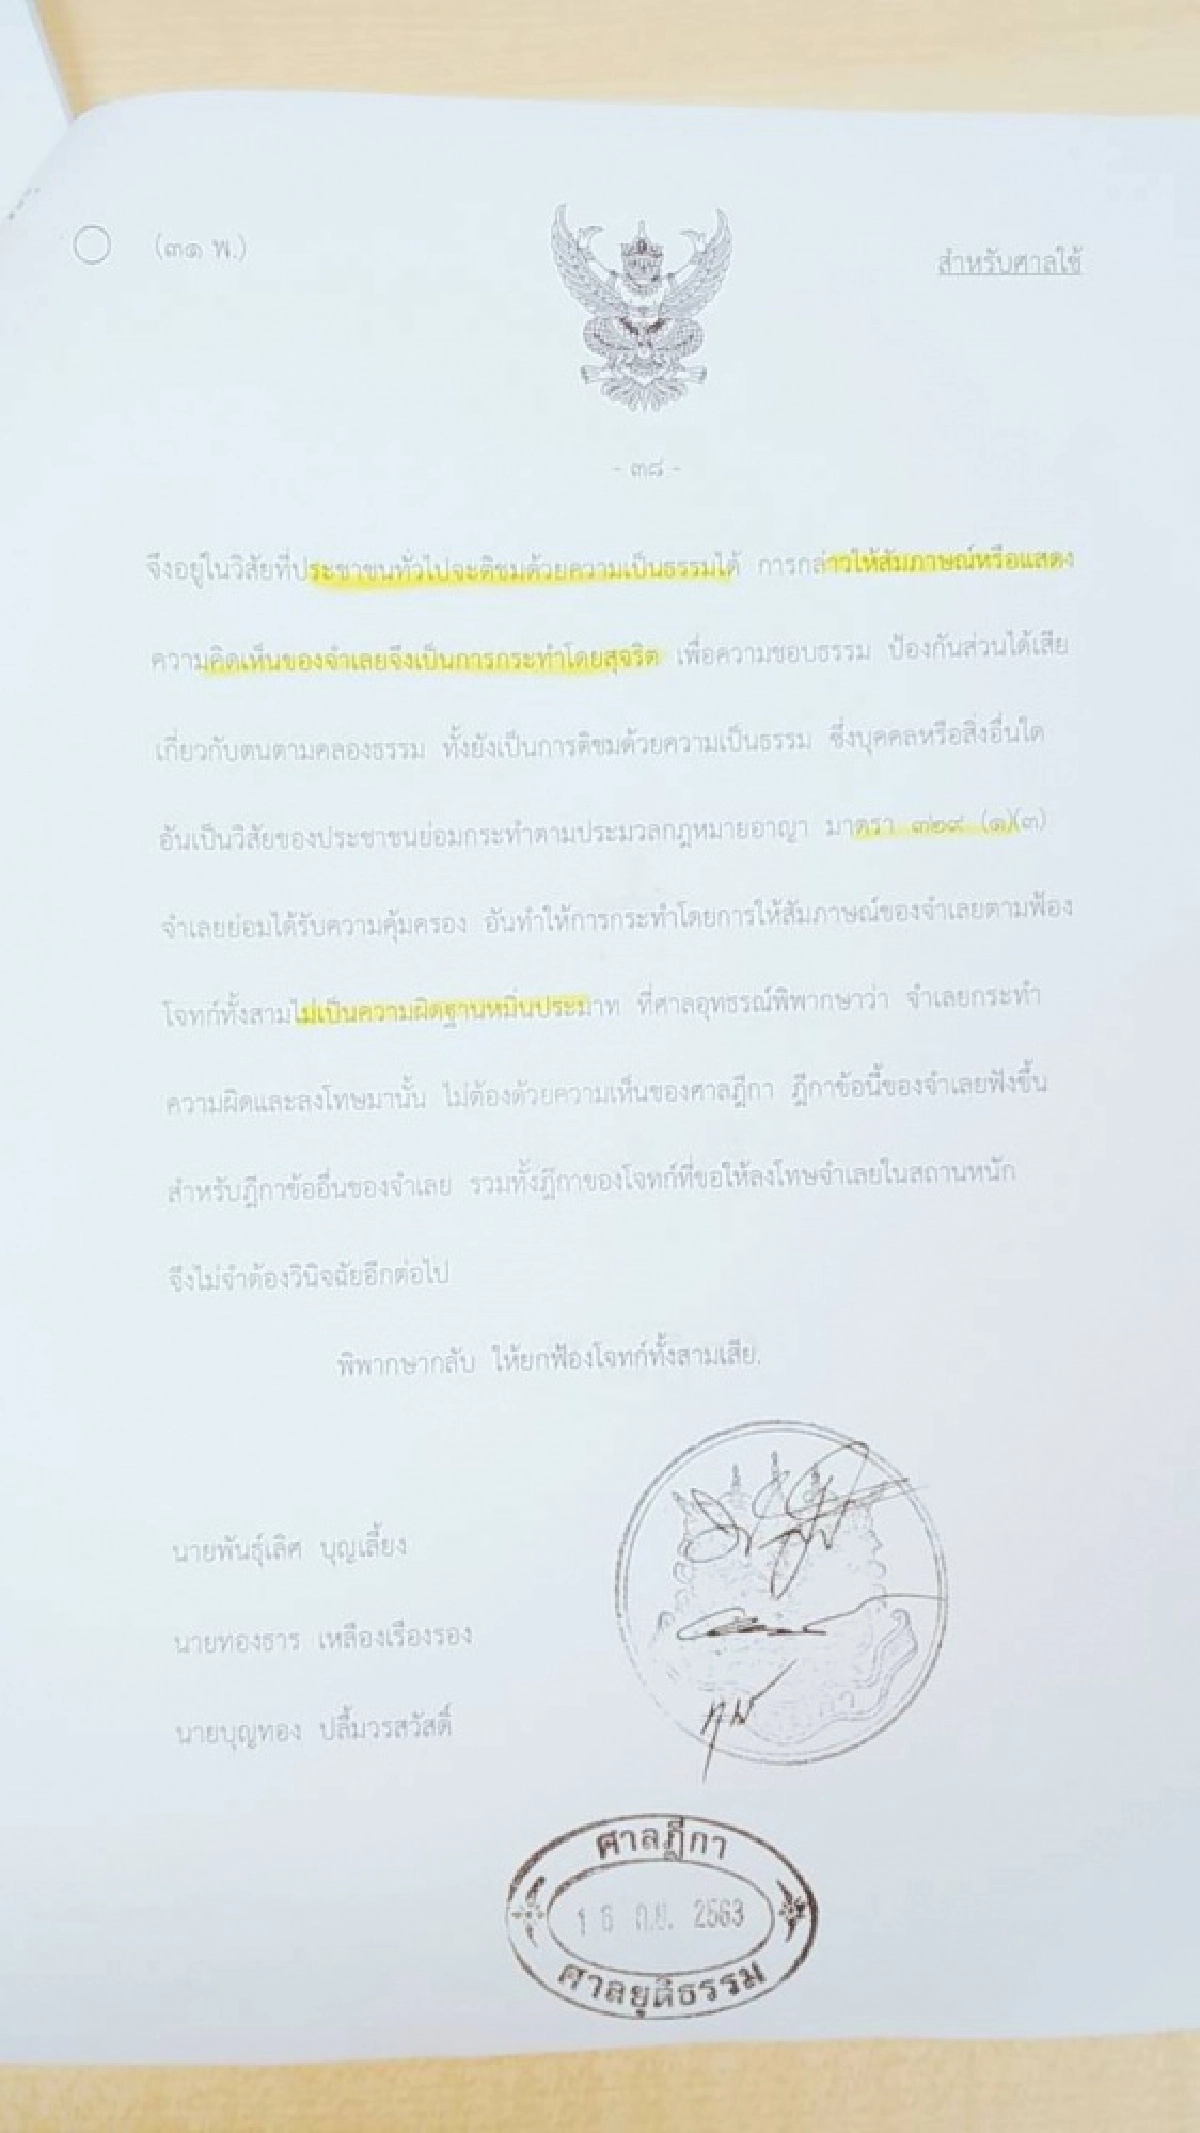 (๓๑ พ.)
สำหรับศาลใช้
- ๓๘ -
จึงอยู่ในวิสัยที่ประชาชนทั่วไปจะติชมด้วยความเป็นธรรมได้ การกล่าวให้สัมภาษณ์หรือแสดง
ความคิดเห็นของจำเลยจึงเป็นการกระทำโดยสุจริต เพื่อความชอบธรรม ป้องกันส่วนได้เสีย
เกี่ยวกับตนตามคลองธรรม ทั้งยังเป็นการติชมด้วยความเป็นธรรม ซึ่งบุคคลหรือสิ่งอื่นใด
อันเป็นวิสัยของประชาชนย่อมกระทำตามประมวลกฎหมายอาญา มาตรา ๓๒๙ (๑)(๓)
จำเลยย่อมได้รับความคุ้มครอง อันทำให้การกระทำโดยการให้สัมภาษณ์ของจำเลยตามฟ้อง
โจทก์ทั้งสามไม่เป็นความผิดฐานหมิ่นประมาท ที่ศาลอุทธรณ์พิพากษาว่า จำเลยกระทำ
ความผิดและลงโทษมานั้น ไม่ต้องด้วยความเห็นของศาลฎีกา ฎีกาข้อนี้ของจำเลยฟังขึ้น
สำหรับฎีกาข้ออื่นของจำเลย รวมทั้งฎีกาของโจทก์ที่ขอให้ลงโทษจำเลยในสถานหนัก
จึงไม่จำต้องวินิจฉัยอีกต่อไป
พิพากษากลับ ให้ยกฟ้องโจทก์ทั้งสามเสีย.
นายพันธุ์เลิศ บุญเลี้ยง
นายทองธาร เหลืองเรืองรอง
นายบุญทอง ปลื้มวรสวัสดิ์
ศาลฎีกา
ก.ย. 2563
ศาลยุติธรรม